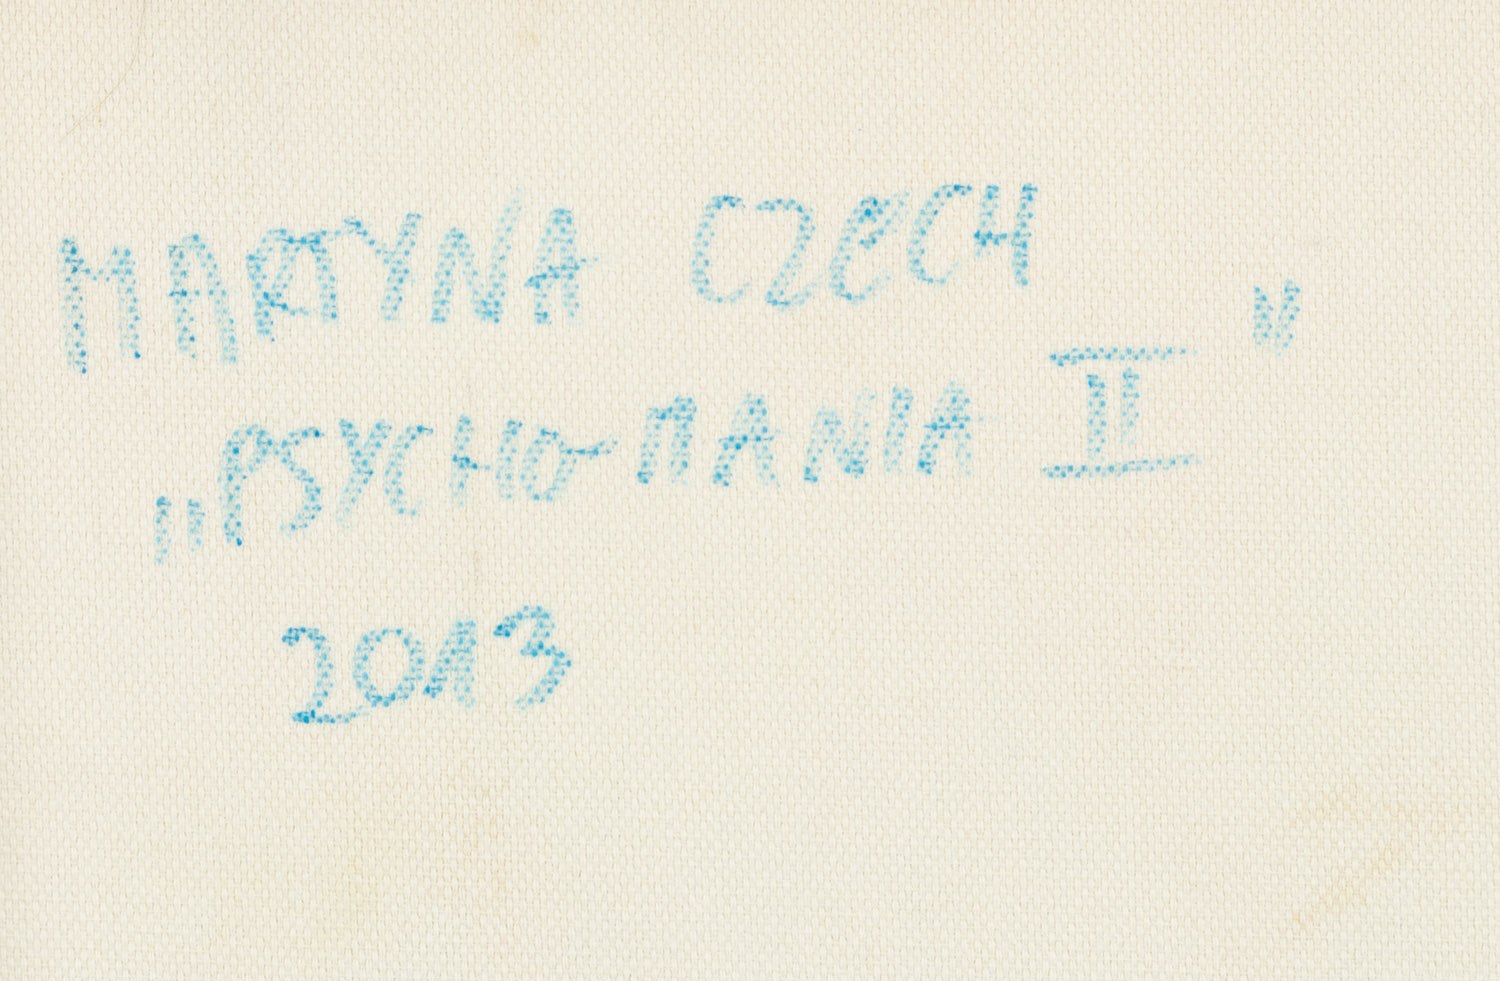 MARTYNA CZECH
„PSYCHO-MANIA II”
2013